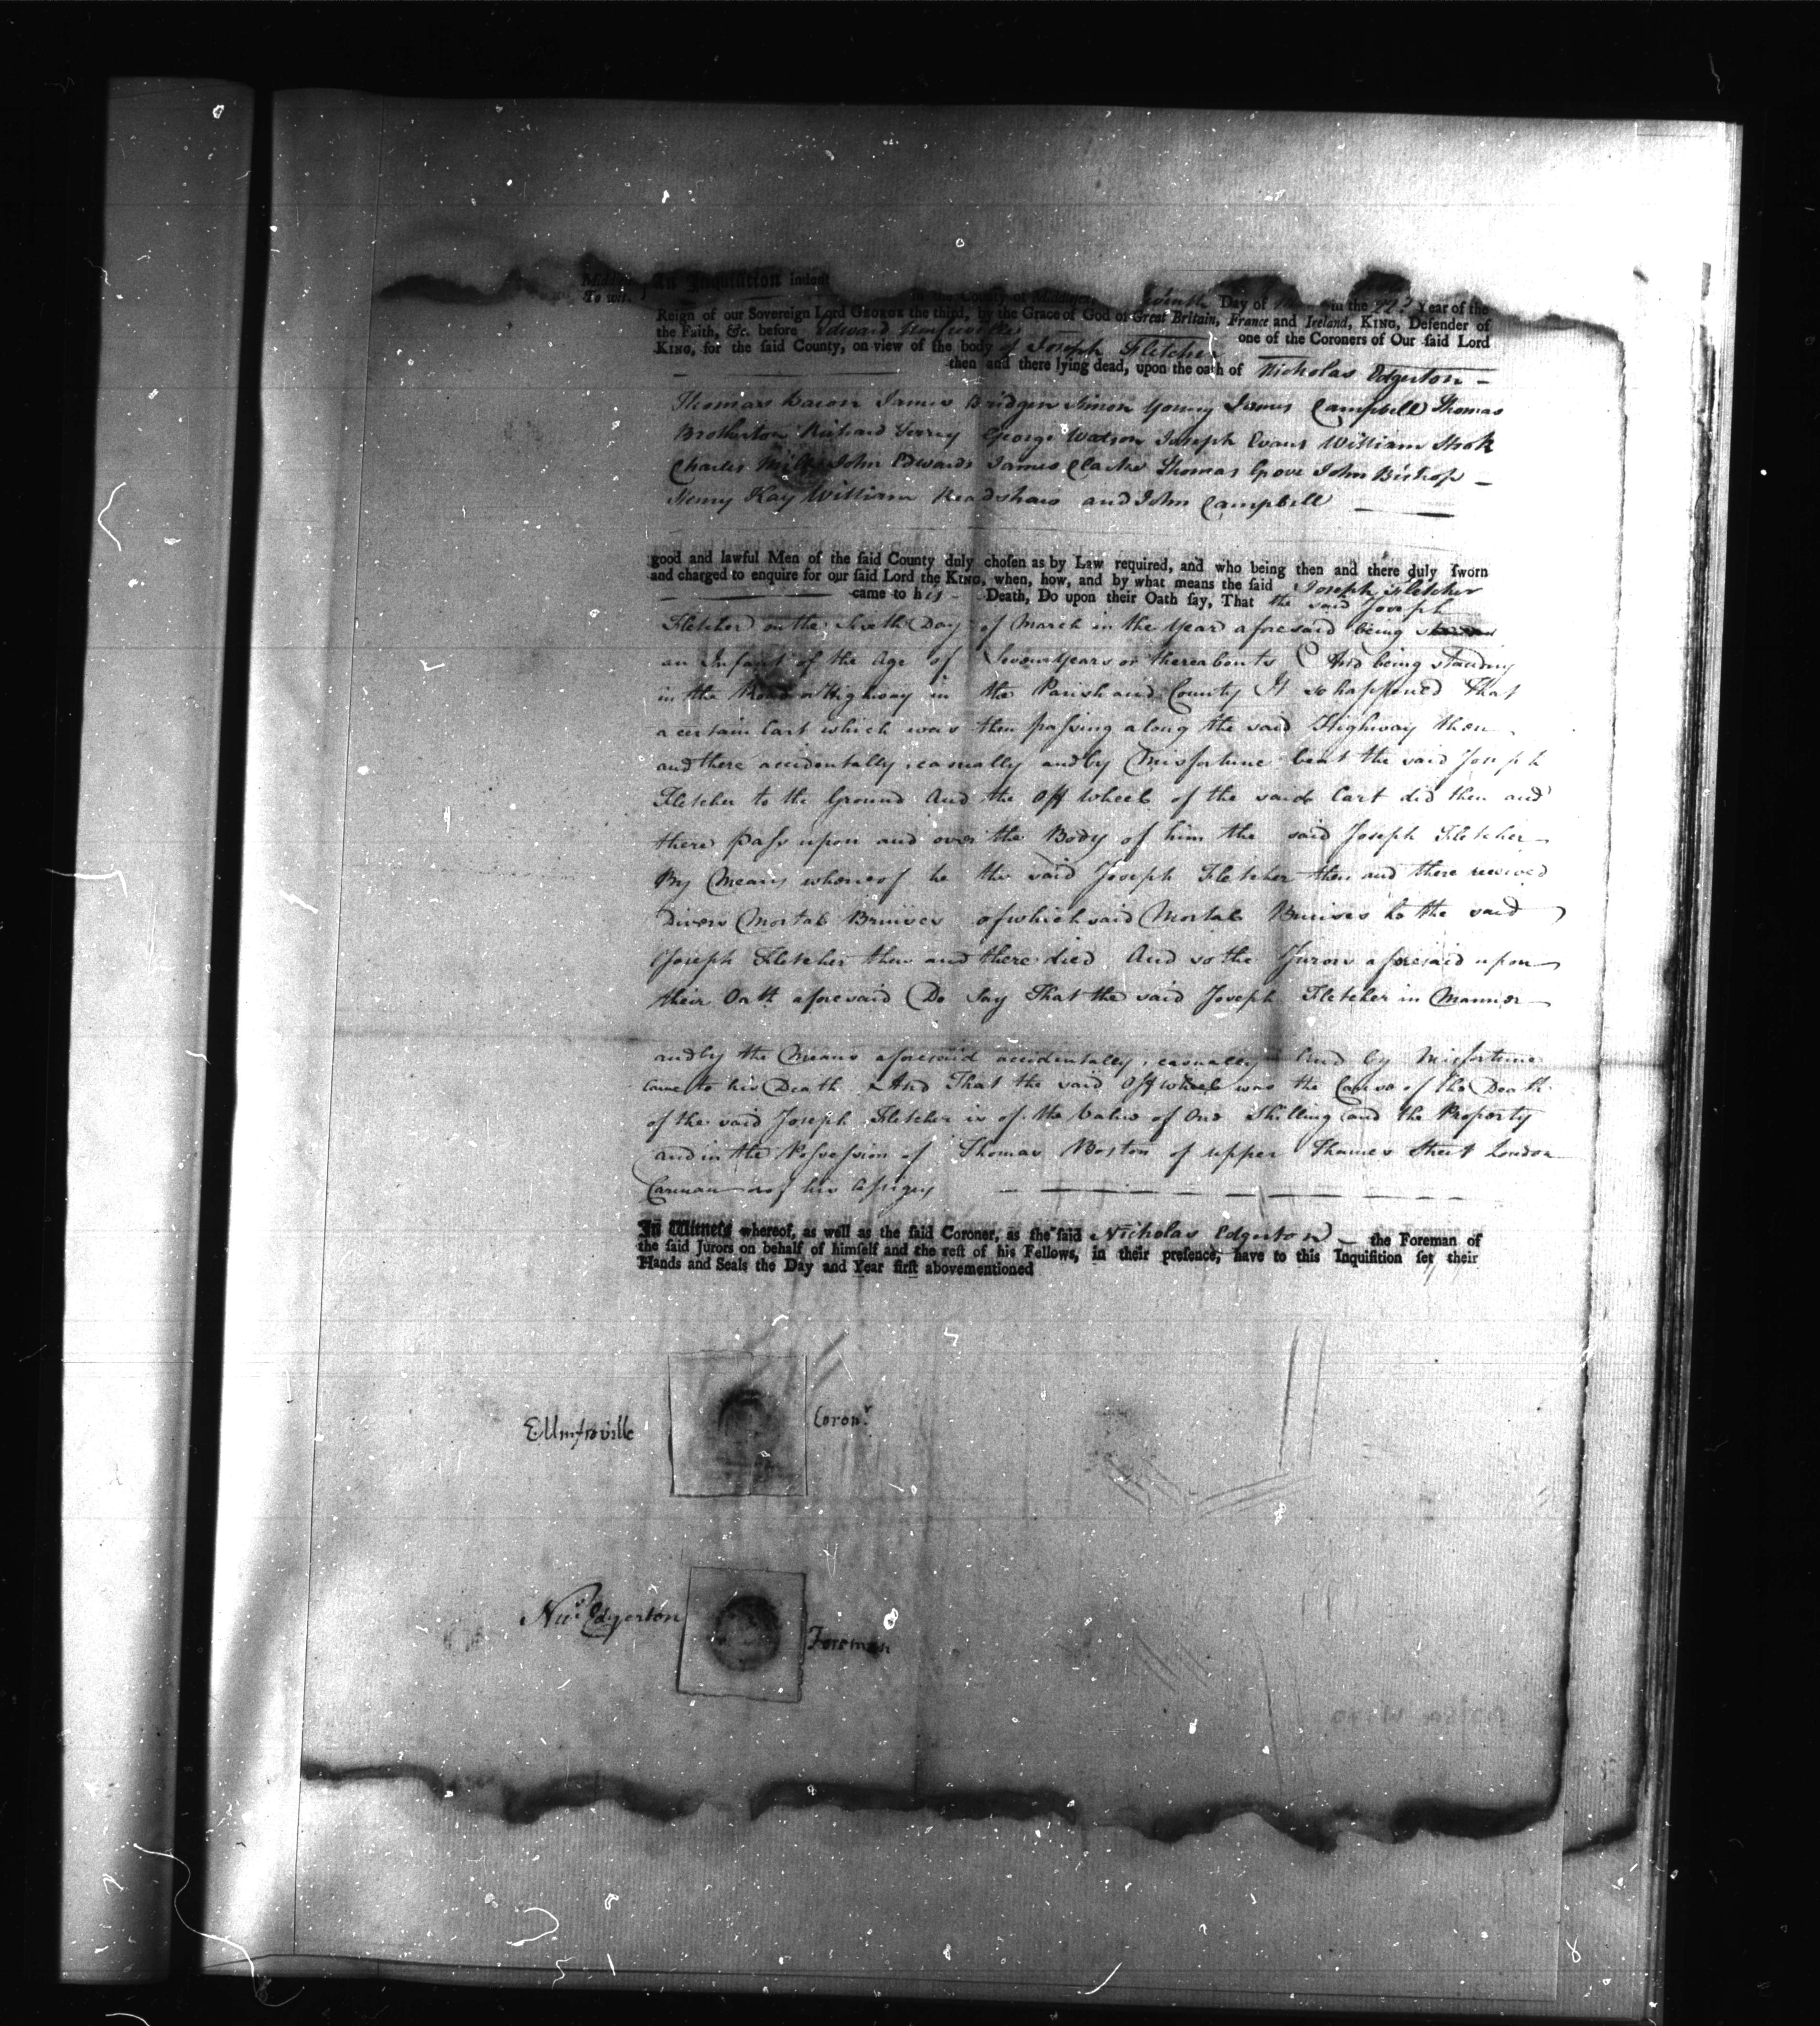 To wit.
An Inquisition indent
in the County of Middlesex, Day of in the 22d Year of the
Reign of our Sovereign Lord GEORGE the third, by the Grace of God of Great Britain, France and Ireland, KING, Defender of
the Faith, &c. before Edward Umfreville one of the Coroners of Our said Lord
KING, for the said County, on view of the body of Joseph Fletcher
then and there lying dead, upon the oath of Nicholas Edgerton
Thomas Bacon James Bridgen Simon Young James Campbell Thomas
Brotherton Richard George Watson Joseph Evans William
Charles Mills John Edwards James Clarke Thomas Gove John Bishop
Henry Kay William Headshaw and John Campbell
good and lawful Men of the said County duly chosen as by Law required, and who being then and there duly sworn
and charged to enquire for our said Lord the KING, when, how, and by what means the said Joseph Fletcher
came to his Death, Do upon their Oath say, That the said Joseph
Fletcher on the Sixth Day of March in the Year aforesaid being
an Infant of the Age of Seven Years or thereabouts And being standing
in the Road or Highway in the Parish and County It so happened That
a certain Cart which was then passing along the said Highway then
and there accidentally, casually and by Misfortune beat the said Joseph
Fletcher to the Ground And the Off Wheel of the said Cart did then and
there pass upon and over the Body of him the said Joseph Fletcher
By Means whereof he the said Joseph Fletcher then and there received
Divers Mortal Bruises of which said Mortal Bruises he the said
Joseph Fletcher then and there died And so the Jurors aforesaid upon
their Oath aforesaid Do Say That the said Joseph Fletcher in Manner
and by the Means aforesaid accidentally, casually And by Misfortune
came to his Death And That the said Off wheel was the Cause of the Death
of the said Joseph Fletcher is of the Value of One Shilling and the Property
and in the Possession of Thomas Boston of upper Thames Street London
Carman or of his Assigns
In Witness whereof, as well as the said Coroner, as the said Nicholas Edgerton the Foreman of
the said Jurors on behalf of himself and the rest of his Fellows, in their presence, have to this Inquisition set their
Hands and Seals the Day and Year first abovementioned
E Umfreville Coronr.
Nics. Edgerton Foreman